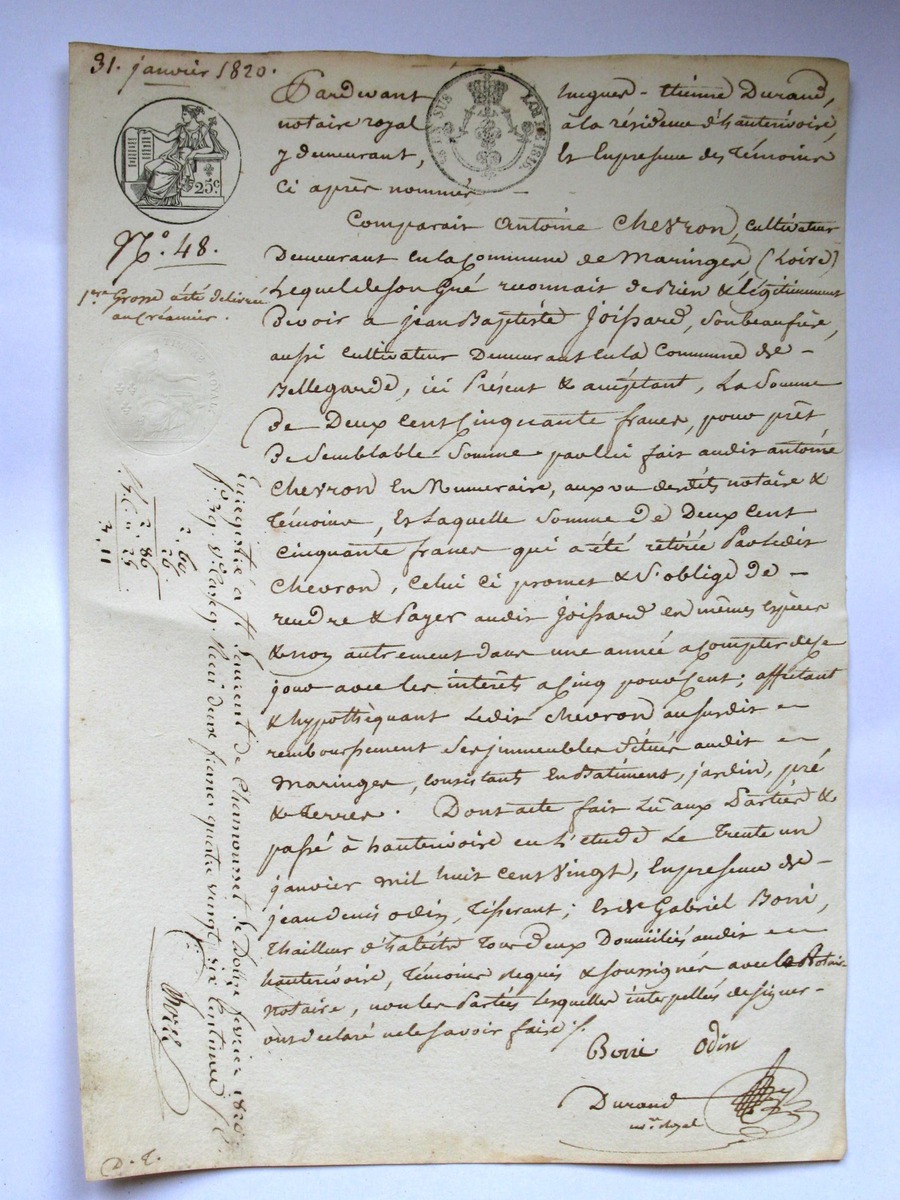 31. janvier 1820.
Pardevant hugues-Etienne Durand,
notaire royal à la résidence d'hauterivoire,
y demeurant, et En presence des Témoins
Ci après nommés
Comparait Antoine Chevron, Cultivateur
Demeurant En la Commune de Maringes (Loire)
Lequel de son Gré reconnait devoir & légitimement
Devoir a jean Baptiste Joissard, son beaufrère,
aussi Cultivateur Demeurant En la Commune de
Bellegarde, ici Présent & acceptant, La Somme
De Deux Cent Cinquante francs, pour prêt
De Semblable Somme par lui fait audit antoine
Chevron En Numeraire, aux vu desdits notaire &
Témoins, Et Laquelle Somme de Deux Cent
Cinquante francs qui a été retirée Par ledit
Chevron, Celui Ci promet & S'oblige De
rendre & Payer audit Joissard en mêmes Espèces
& non autrement dans une année a compter de ce
jour avec les intérêts a Cinq pour Cent; affectant
& hypothèquant Ledit Chevron au susdit
remboursement Ses immeubles Situés audit
Maringes, Consistant En Batiment, jardin, pré
& terres. Dont acte fait Lu aux Parties &
passé à hauterivoire en L'etude Le Trente un
janvier mil huit Cent Vingt, En presence de
jean denis odin, Tisserant; Et de Gabriel Borri,
Thailleur d'habits Tous deux Domiciliés audit
hauterivoire, Témoins requis & soussignés avec le Notaire
notaire, non les Parties Lesquelles interpellées de signer
ont declaré ne le savoir faire ./.
Borri Odin
Durand
n.re royal
SUS
LOI DE 1816.
25c.
N.o 48.
1re Grosse a été délivrée
au Créancier.
Enregistré a St Laurent de Chamousset Le Douze fevrier 1820,
f.o 39. Reçu deux francs quatre vingt six Centimes
2, 60
26
2, 86
25
3, 11
D. T.